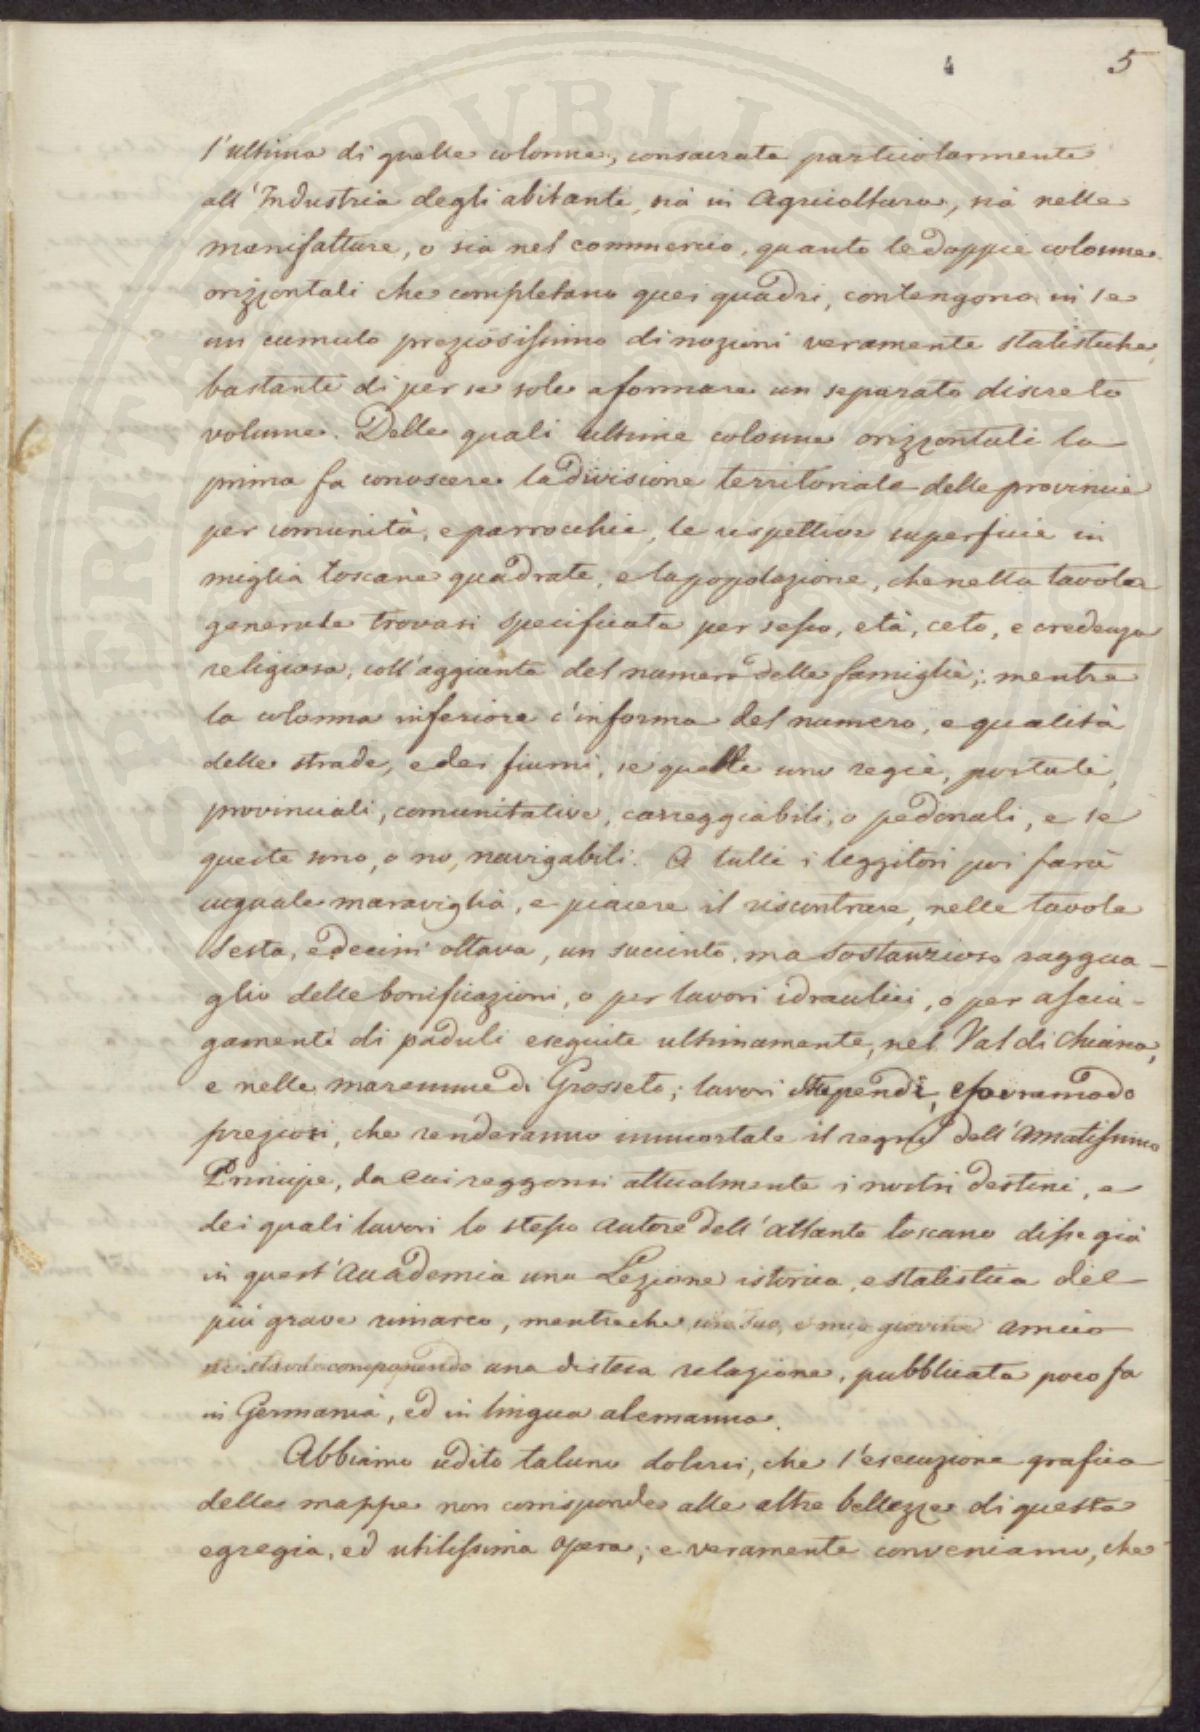 4 5
l'ultima di quelle colonne, consacrata particolarmente
all'Industria degli abitanti, sia in Agricoltura, sia nelle
manifatture, o sia nel commercio, quanto le doppie colonne
orizzontali che completano quei quadri, contengono in se
un cumulo preziosissimo di nozioni veramente statistiche,
bastante di per se solo a formare un separato discreto
volume. Delle quali ultime colonne orizzontali la
prima fa conoscere la divisione territoriale delle provincie
per comunità, e parrocchie, le respettive superficie in
miglia toscane quadrate, e la popolazione, che nella tavola
generale trovasi specificata per sesso, età, ceto, e credenza
religiosa, coll'aggiunta del numero delle famiglie; mentre
la colonna inferiore c'informa del numero, e qualità
delle strade, e dei fiumi, se quelle sono regie, postali,
provinciali, comunitative, carreggiabili, o pedonali, e se
queste sono, o no, navigabili. A tutti i leggitori poi farà
uguale maraviglia, e piacere il riscontrare, nelle tavole
sesta, e decim' ottava, un succinto, ma sostanzioso raggua-
glio delle bonificazioni, o per lavori idraulici, o per asciu-
gamenti di paduli eseguite ultimamente, nel Val di Chiana,
e nelle maremme di Grosseto; lavori stupendi, e sovramodo
preziosi, che renderanno immortale il regno dell'Amatissimo
Principe, da cui reggonsi attualmente i nostri destini, e
dei quali lavori lo stesso Autore dell'Atlante toscano disse già
in quest'Accademia una Lezione istorica, e statistica del
più grave rimarco, mentreche un suo, e mio giovine amico
ne stava componendo una distesa relazione, pubblicata poco fa
in Germania, ed in lingua alemanna.
Abbiamo udito taluno dolersi, che l'esecuzione grafica
delle mappe non corrisponde alle altre bellezze di questa
egregia, ed utilissima opera; e veramente conveniamo, che